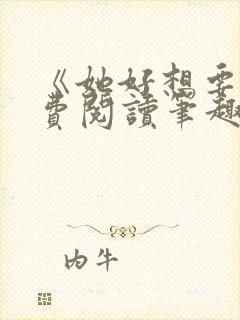 《她好想要
費閱讀筆趣
肉牛